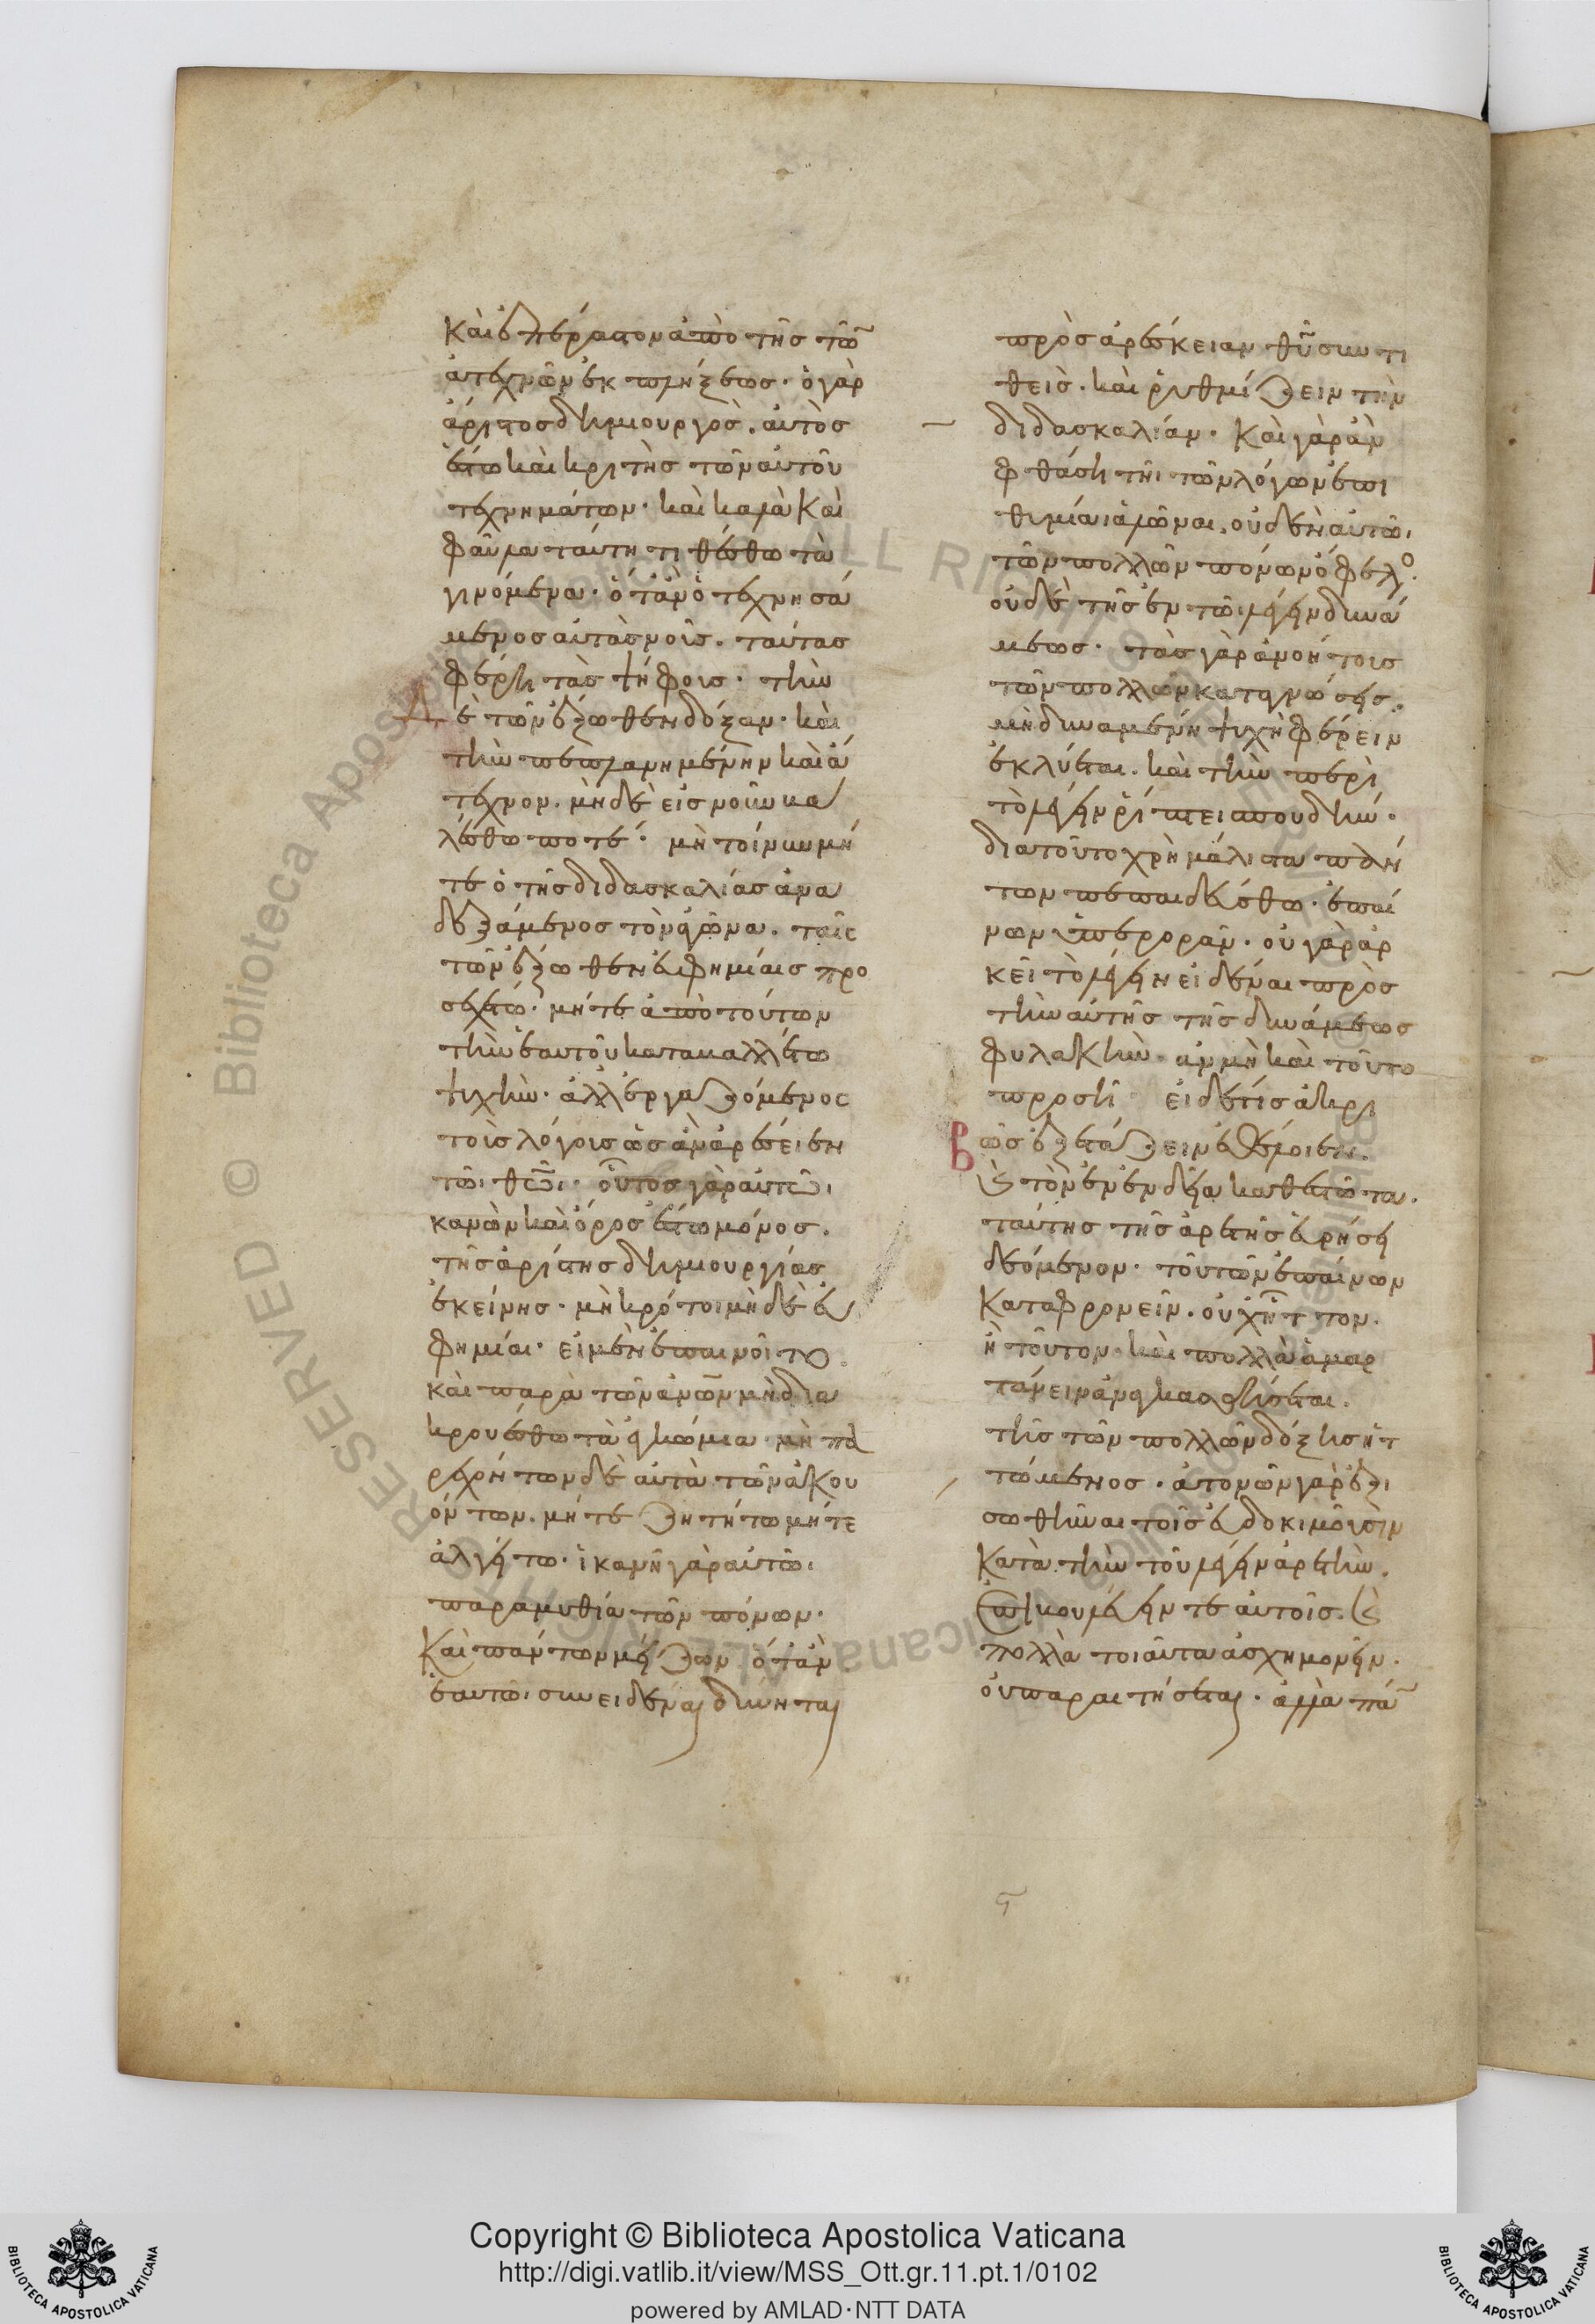 καὶ ἐξέρριπτον ἀπὸ τῆς τῶν
ἀτέχνων ἐκπλήξεως. ὁ γὰρ
ἄριστος δημιουργὸς. αὐτὸς
ἔστω καὶ κριτὴς τῶν αὐτοῦ
τεχνημάτων. καὶ καλὰ καὶ
φαῦλα ταύτῃ τιθέσθω τὰ
γινόμενα. ὅταν ὁ τεχνησά
μενος αὐτὰ νοῦς. ταύτας
φέρῃ τὰς ψήφους. τὴν
δὲ τῶν ἔξωθεν δόξαν. καὶ
τὴν πεπλανημένην καὶ ἄ
τεχνον. μηδὲ εἰς νοῦν βα
λέσθω ποτέ. μὴ τοίνυν μή
τε ὁ τῆς διδασκαλίας ἀνα
δεξάμενος τὸν ἀγῶνα. ταῖς
τῶν ἔξωθεν εὐφημίαις προ
σεχέτω. μήτε ἀπὸ τούτων
τὴν ἑαυτοῦ καταβαλλέτω
ψυχὴν. ἀλλ' ἐργαζόμενος
τοὺς λόγους ὡς ἂν ἀρέσειεν
τῶι θεῶι. οὗτος γὰρ αὐτῶι
κανὼν καὶ ὅρος ἔστω μόνος.
τῆς ἀρίστης δημιουργίας
ἐκείνης. μὴ κρότοι μηδὲ εὐ
φημίαι. εἰ μὲν ἐπαινοῖτο
καὶ παρὰ τῶν ἀνθρώπων μὴ δια
κρουέσθω τὰ ἐγκώμια. μὴ πα
ρεχόντων δὲ αὐτὰ τῶν ἀκου
όντων. μήτε ζητείτω μήτε
ἀλγείτω. ἱκανὴ γὰρ αὐτῶι
παραμυθία τῶν πόνων.
καὶ πάντων μείζων ὅταν
ἑαυτῶι συνειδέναι δύνηται
πρὸς ἀρέσκειαν θεοῦ συντι
θεὶς. καὶ ῥυθμίζειν τὴν
διδασκαλίαν. καὶ γὰρ ἂν
φθάσῃ τῆι τῶν λόγων ἐπι
θυμίαι ἁλῶναι. οὐδὲν αὐτῶι
τῶν πολλῶν πόνων ὄφελος.
οὐδὲ τῆς ἐν τῶι λέγειν δυνά
μεως. τὰς γὰρ ἀνοήτους
τῶν πολλῶν καταγνώσεις.
μὴ δυναμένη ψυχὴ φέρειν
ἐκλύεται. καὶ τὴν περὶ
τὸ λέγειν ῥίπτει σπουδήν.
διὰ τοῦτο χρὴ μάλιστα πάν
των πεπαιδεῦσθω. ἐπαί
νων ὑπερορᾶν. οὐ γὰρ ἀρ
κεῖ τὸ λέγειν εἰδέναι πρὸς
τὴν αὐτῆς τῆς δυνάμεως
φυλακὴν. ἂν μὴ καὶ τοῦτο
προσῆ εἰ δέ τις ἀκρι
βῶς ἐξετάζειν ἐθέλοι
καὶ τὸν ἐν ἐνδείᾳ καθεστῶτα.
ταύτης τῆς ἀρετῆς εὑρήσει
δεόμενον. τοῦ τῶν ἐπαίνων
καταφρονεῖν. οὐχ ἧττον.
ἢ τοῦτον. καὶ πολλὰ ἁμαρ
τάνειν ἀναγκασθήσεται.
τῆς τῶν πολλῶν δόξης ἡτ
τώμενος. ἀτονῶν γὰρ ἐξι
σωθῆναι τοῖς εὐδοκιμοῦσιν
κατὰ τὴν τοῦ λέγειν ἀρετὴν.
ἐπιβουλεύειν τε αὐτοῖς. καὶ
πολλὰ τοιαῦτα ἀσχημονεῖν.
οὐ παραιτήσεται. ἀλλὰ πάν
Copyright © Biblioteca Apostolica Vaticana
http://digi.vatlib.it/view/MSS_Ott.gr.11.pt.1/0102
powered by AMLAD·NTT DATA